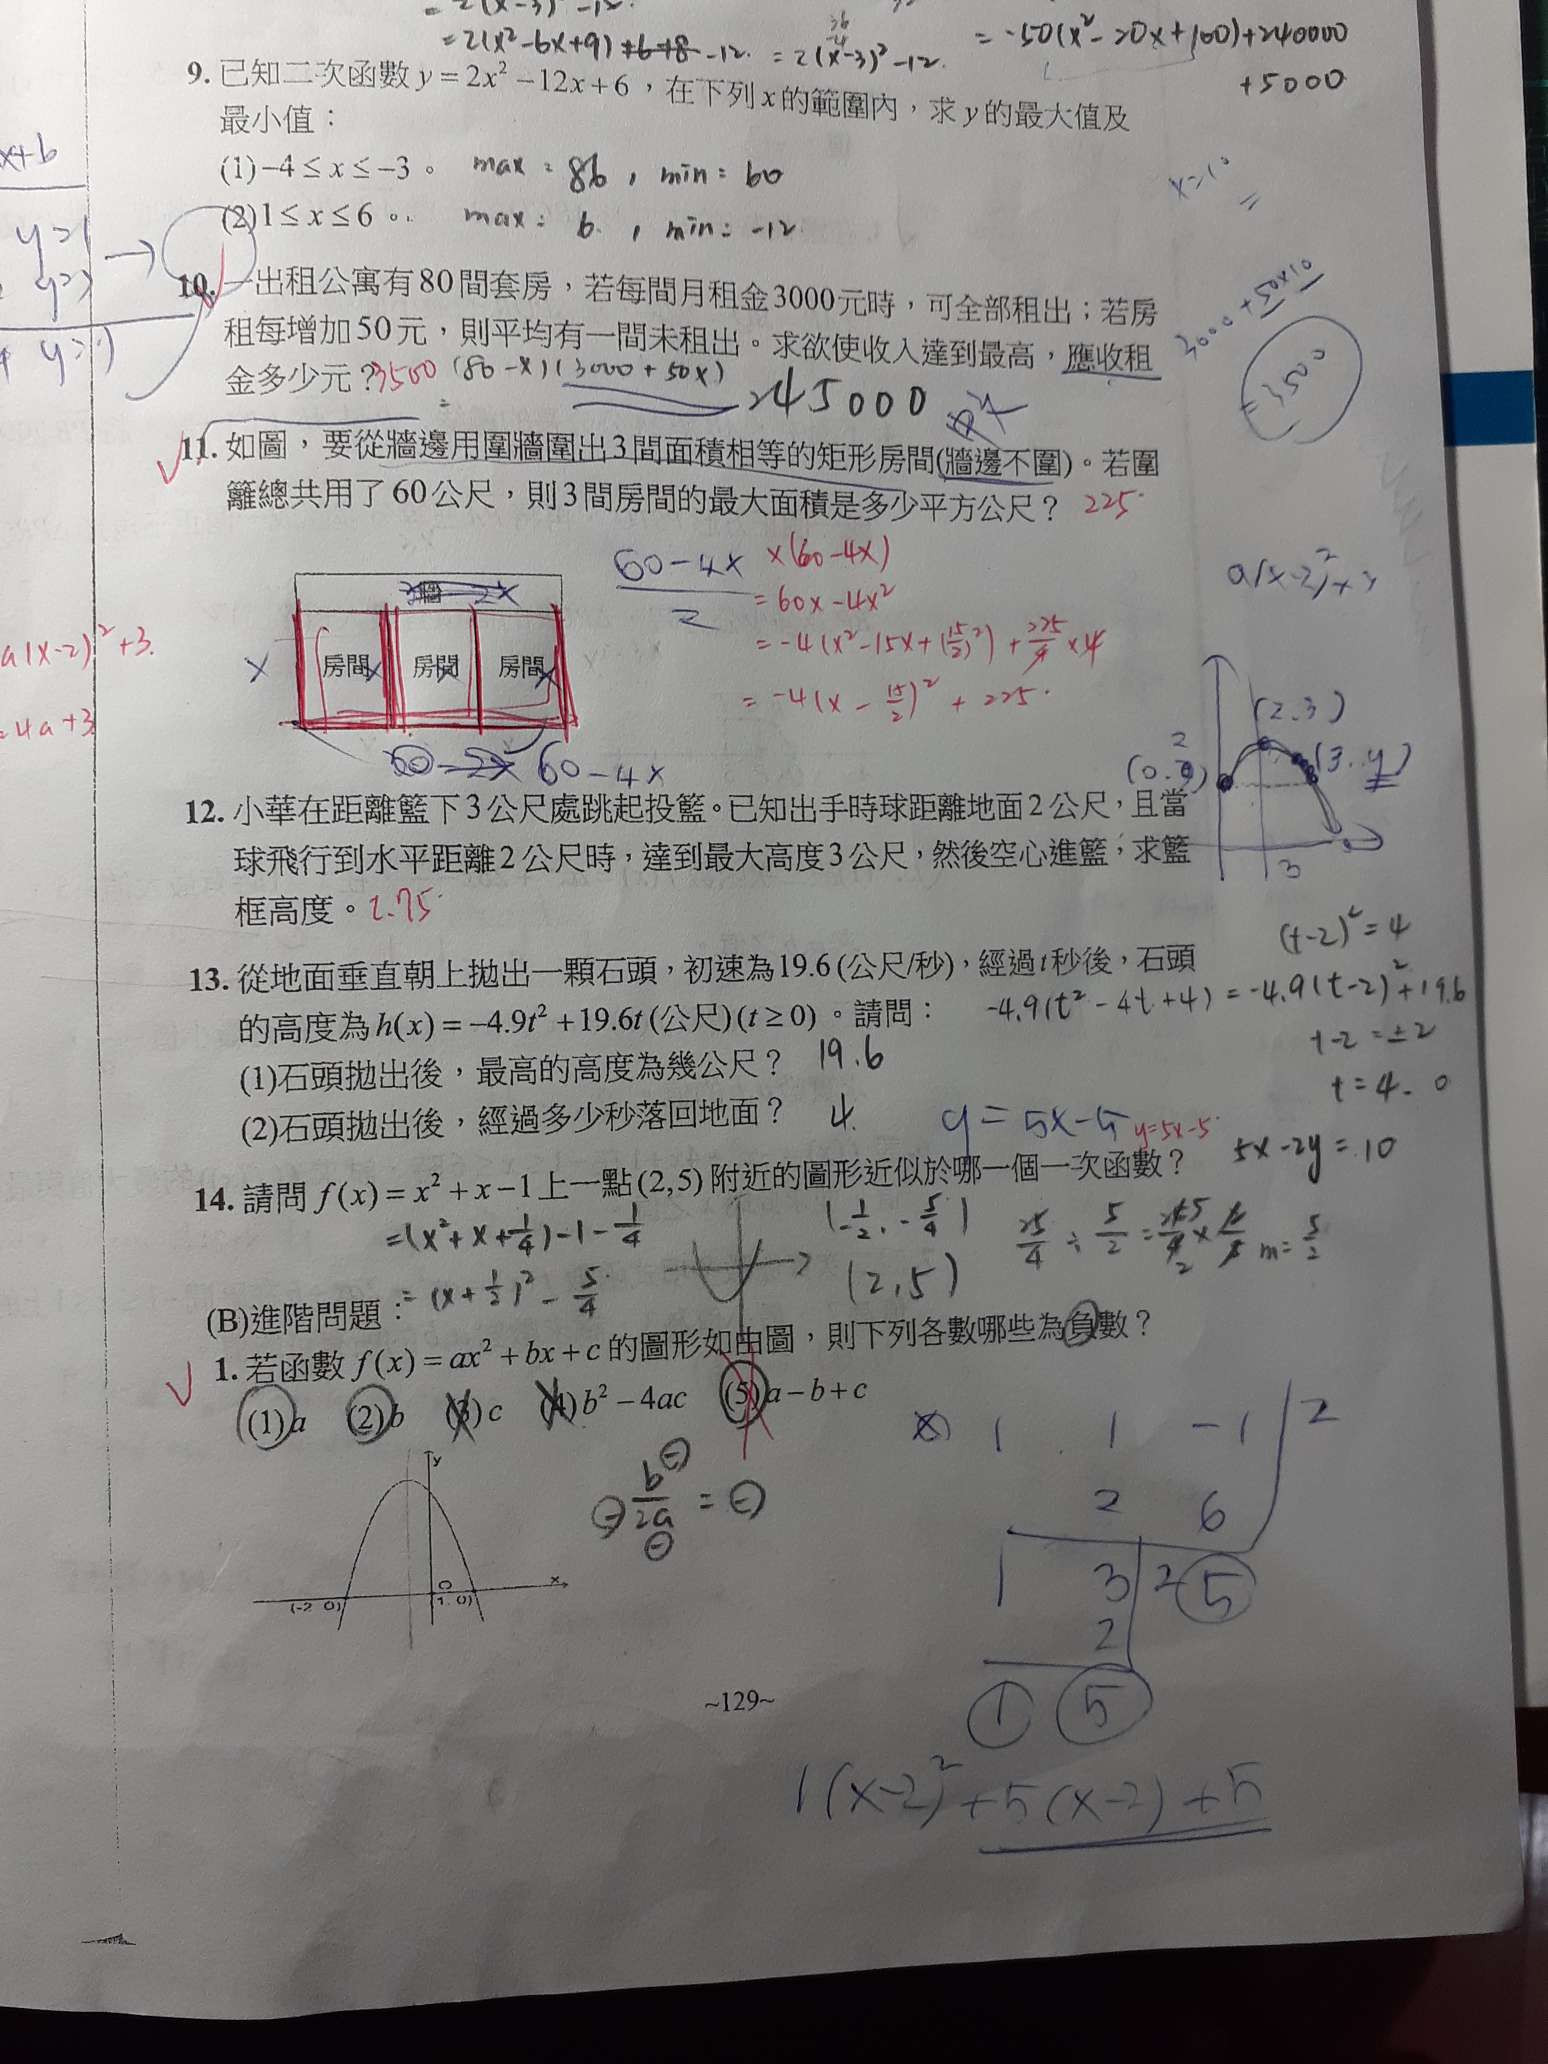 = 2(x-3)² -12.
= 2(x²-6x+9)+6+8-12. = 2(x-3)²-12.
= -50(x²-20x+100)+240000
+5000
9. 已知二次函數 y = 2x² -12x+6，在下列 x 的範圍內，求 y 的最大值及
最小值：
(1) -4 ≤ x ≤ -3。 max = 86, min = 60
(2) 1 ≤ x ≤ 6。 max = 6. , min = -12
x+b
y=1
10. 一出租公寓有80間套房，若每間月租金3000元時，可全部租出；若房
租每增加50元，則平均有一間未租出。求欲使收入達到最高，應收租
金多少元？3500 (80-x)(3000+50x)
= 245000
x=10
=
3000+50×10
=3500
11. 如圖，要從牆邊用圍牆圍出3間面積相等的矩形房間(牆邊不圍)。若圍
籬總共用了60公尺，則3間房間的最大面積是多少平方公尺？ 225
60-4x
2
x(60-4x)
= 60x-4x²
= -4(x²-15x+(15/2)²)+225/4×4
= -4(x-15/2)²+225.
房間 房間 房間
x
60-2x 60-4x
a(x-2)²+3
a(x-2)²+3.
=4a+3
(2.3)
(0.2)
(3.y)
3
12. 小華在距離籃下3公尺處跳起投籃。已知出手時球距離地面2公尺，且當
球飛行到水平距離2公尺時，達到最大高度3公尺，然後空心進籃，求籃
框高度。2.75
13. 從地面垂直朝上拋出一顆石頭，初速為19.6(公尺/秒)，經過t秒後，石頭
的高度為h(x) = -4.9t² +19.6t (公尺)(t ≥ 0)。請問：
-4.9(t²-4t+4) = -4.9(t-2)²+19.6
(1)石頭拋出後，最高的高度為幾公尺？ 19.6
(2)石頭拋出後，經過多少秒落回地面？ 4.
(t-2)²=4
t-2=±2
t=4. 0
y=5x-5 y=5x-5
5x-2y=10
14. 請問 f(x) = x² + x -1上一點(2,5)附近的圖形近似於哪一個一次函數？
=(x²+x+1/4)-1-1/4
= (x+1/2)² - 5/4
(-1/2, -5/4)
(2,5)
25/4 ÷ 5/2 =
m=5/2
(B)進階問題：
1. 若函數 f(x) = ax² + bx + c 的圖形如由圖，則下列各數哪些為負數？
(1)a (2)b (3)c (4)b² -4ac (5)a-b+c
y
O
x
(-2 0)
(1. 0)
-b/2a = ⊖
1 1 -1 2
2 6
1 3 5
2
1 5
1(x-2)²+5(x-2)+5
~129~